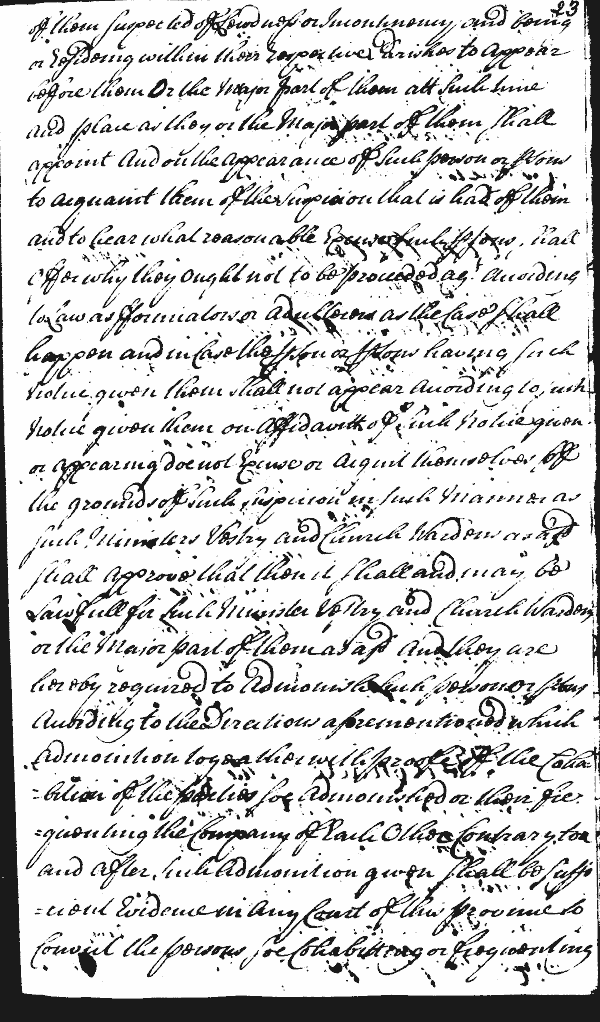 23
of them Suspected of Lewdness or Incontinency and being
or Residing within their respective Parishes to Appear
before them Or the Major part of them att Such time
and place as they or the Major part of them Shall
appoint And on the appearance of Such person or psons
to acquaint them of the Suspicion that is had of them
and to hear what reasonable Excuse Such psons Shall
Offer why they ought not to be proceeded agt According
to Law as fformicators or Adulterers as the Case Shall
happen and in Case the pson or psons having Such
Notice given them Shall not appear according to such
Notice given them on Affidavitt of Such Notice given
or appearing doe not Excuse or Acquit themselves off
the grounds of Such Suspicion in Such Manner as
Such Ministers Vestry and Church Wardens as afd
Shall Approve that then it Shall and may be
Lawfull for Such Minister Vestry and Church Wardens
or the Major part of them as afd And they are
hereby required to Admonish Such person or psons
According to the Directions aforementioned which
Admonition together with proofe of the Coha
=bition of the parties soe Admonished or their fre
=quenting the Company of Each Other Contrary to
and after Such Admonition given Shall be Suffi
=cient Evidence in Any Court of this province to
Convict the persons soe Cohabitting or frequenting